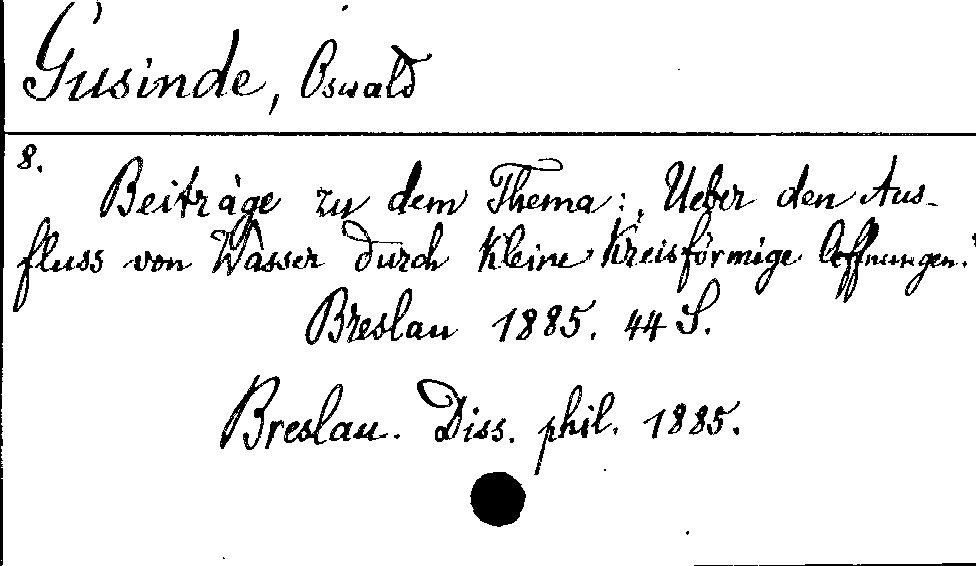 Gusinde, Oswald
8.
Beiträge zu dem Thema: „Ueber den Aus-
fluss von Wasser durch kleine kreisförmige Oeffnungen.“
Breslau 1885. 44 S.
Breslau. Diss. phil. 1885.